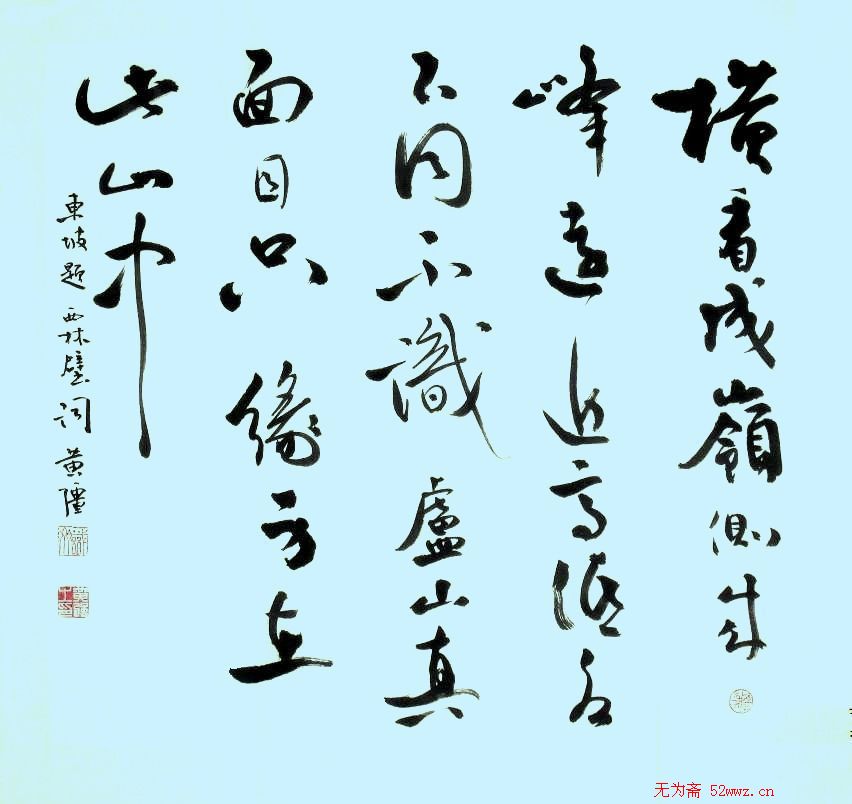 橫看成嶺側成
峰遠近高低各
不同不識盧山真
面目只緣身在
此山中
東坡題西林壁詞 黃
无为斋 52wwz.cn